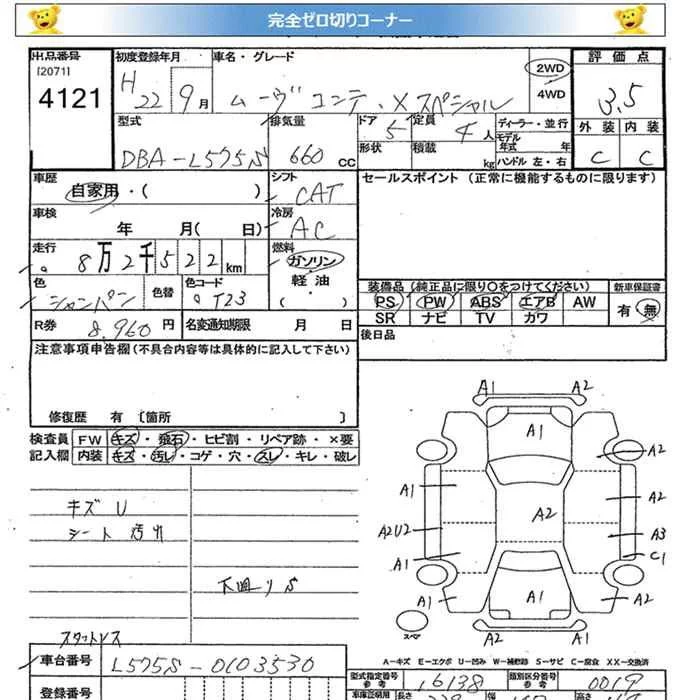 完全ゼロ切りコーナー
出品番号 初度登録年月 車名・グレード 2WD 評価点
[2071]
4121 H 22 9月 ムーヴコンテ・Xスペシャル 4WD 3.5
型式 排気量 ドア 5 定員 4人 ディーラー・並行 外装 内装
モデル年式 年
DBA-L575S 660cc 形状 積載 kg ハンドル 左・右 C C
車歴 自家用・( ) シフト CAT セールスポイント (正常に機能するものに限ります)
車検 年 月( 日) 冷房 AC
走行 8万2千522km 燃料 ガソリン
軽・油
( )
色 シャンパン 色替 色コード T23
装備品 (純正品に限り○をつけてください) 新車保証書
PS PW ABS エアB AW 有・無
SR ナビ TV カワ
R券 8,960円 名変通知期限 月 日 後日品
注意事項申告欄(不具合内容等は具体的に記入して下さい)
修復歴 有 [箇所 ]
検査員 FW キズ・飛石・ヒビ割・リペア跡・×要
記入欄 内装 キズ・汚れ・コゲ・穴・スレ・キレ・破レ
キズ U
シート 汚れ
下回りS
A1 A2
A1
A2
A1 A2
A2
A2U2 A3
C1
A1 A1
A1 A1 A2
A1 A2
スペア
スタットレス
車台番号 L575S-0103530
A-キズ E-エクボ U-凹み W-補修跡 S-サビ C-腐食 XX-交換済
型式指定番号 参考 16138 類別区分番号 参考 0019
登録番号 車庫証明用 長さ 幅